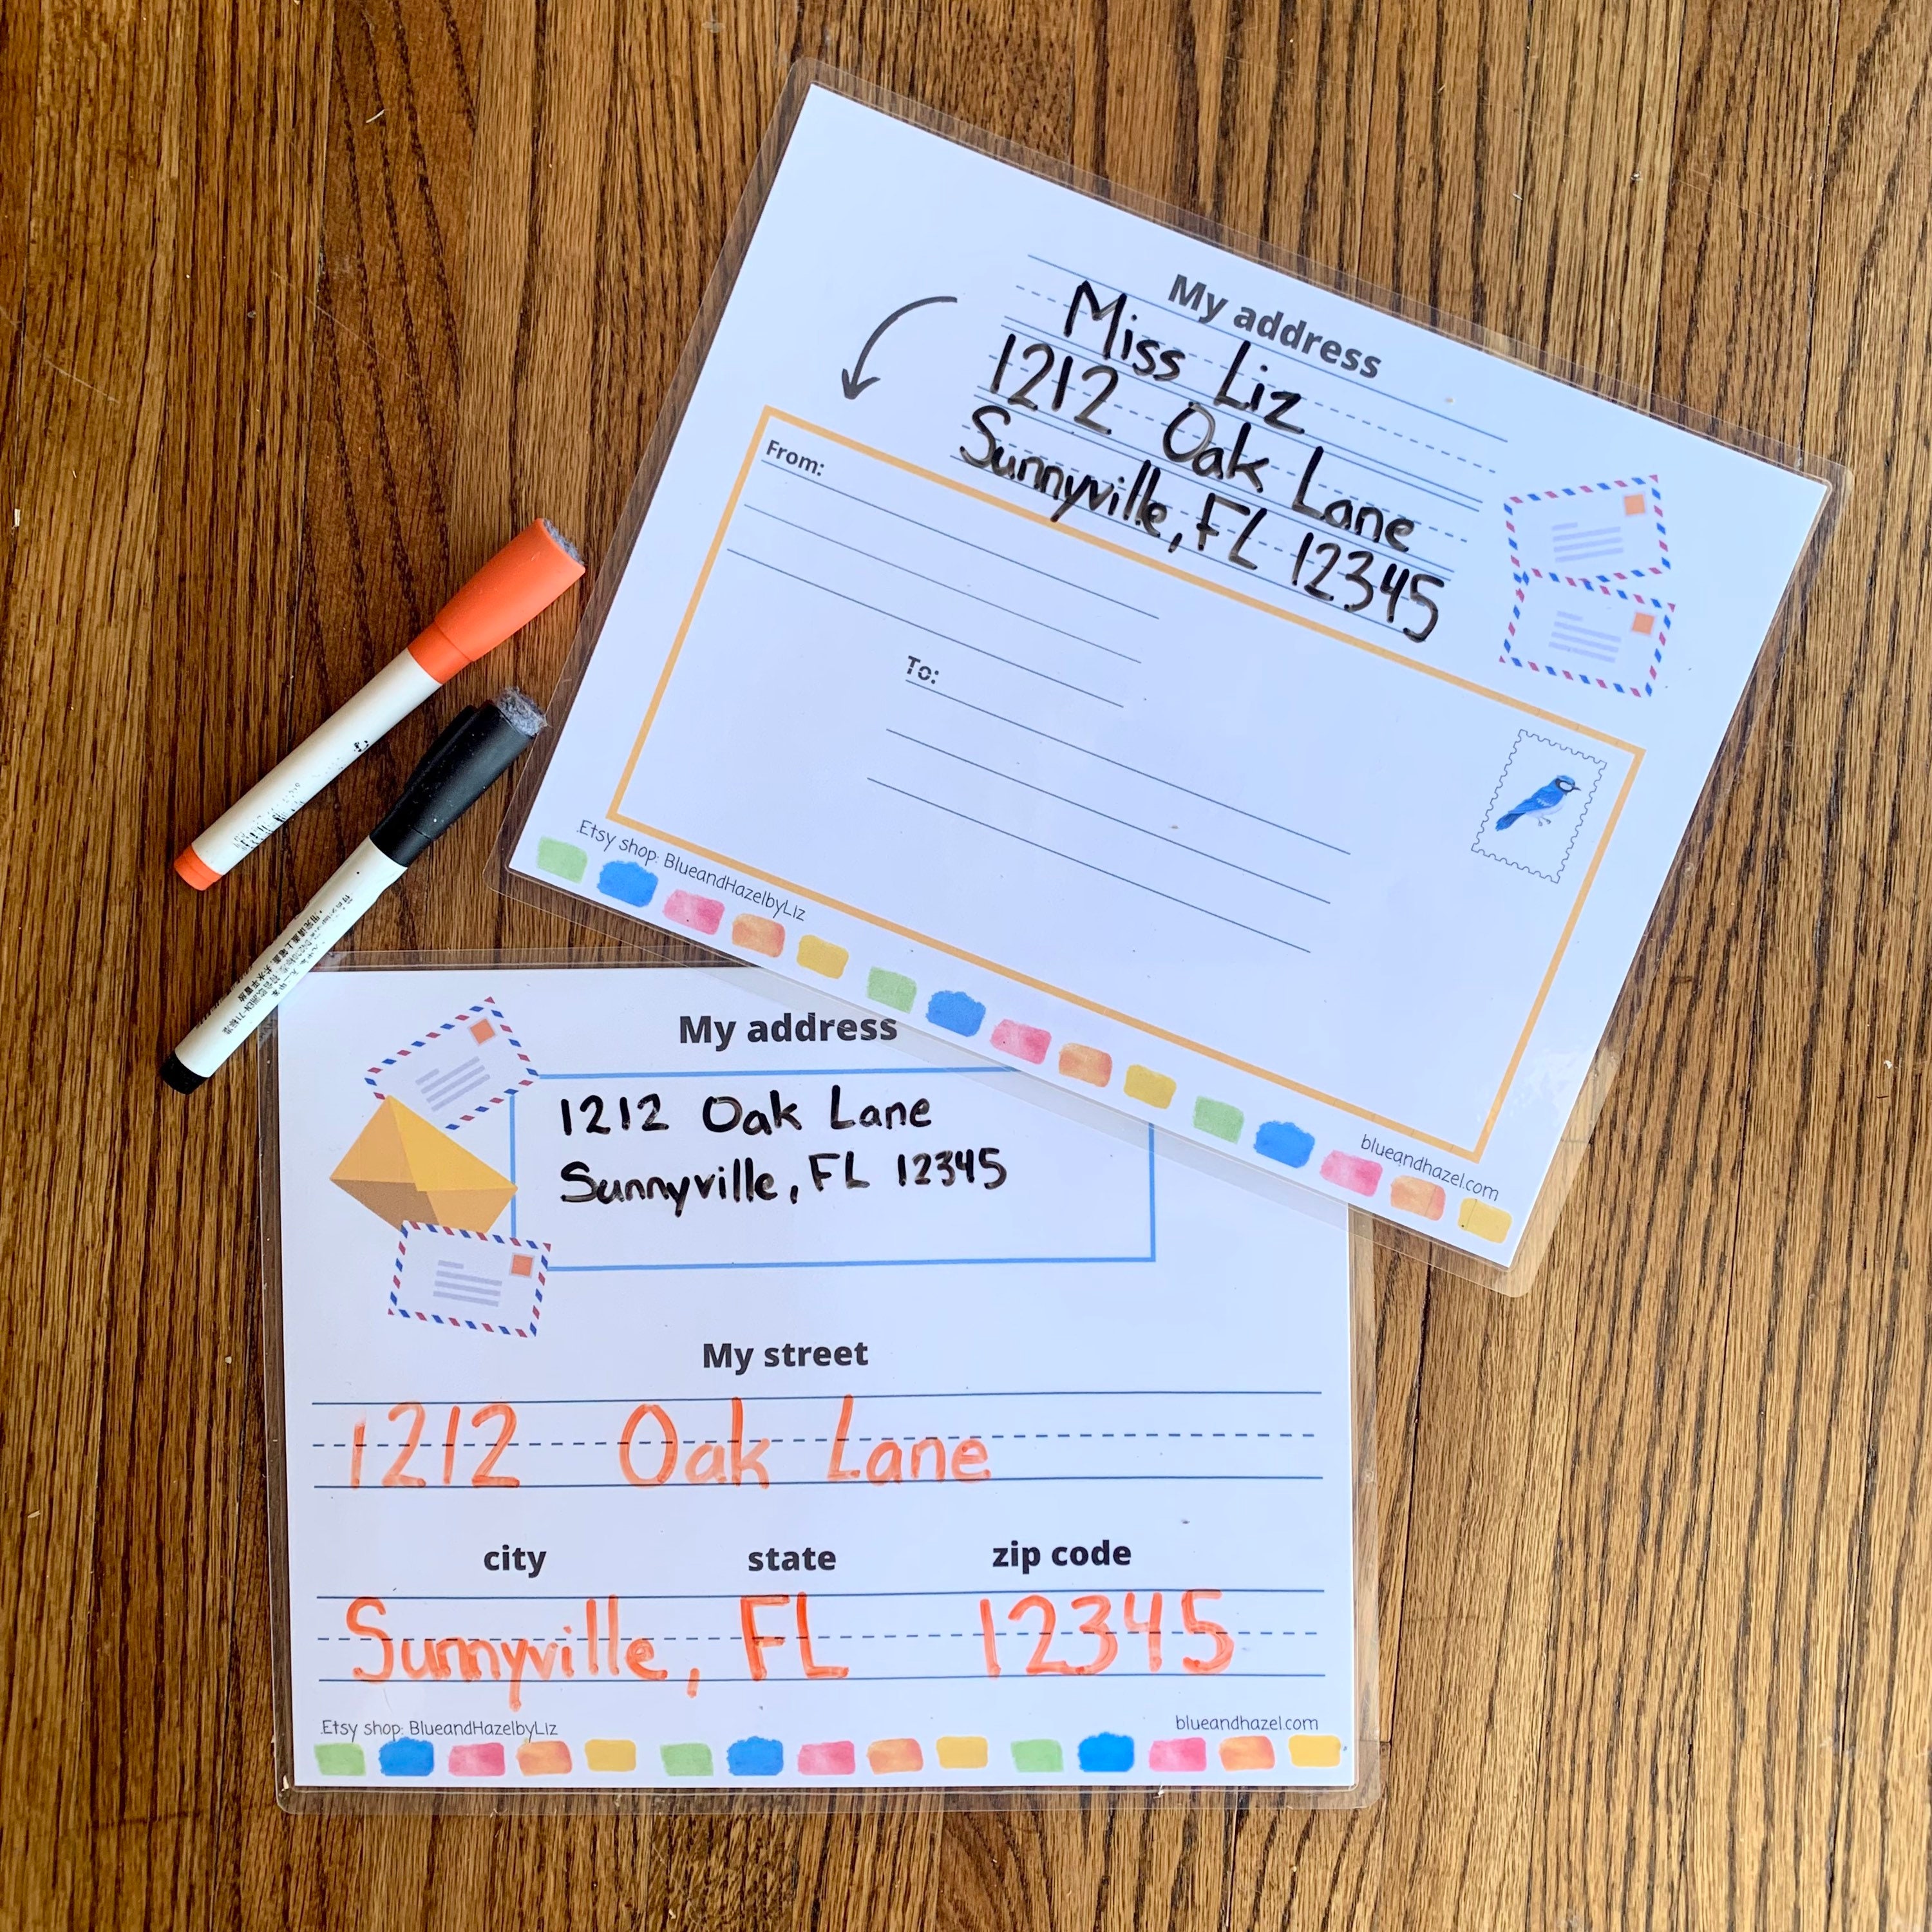 My address
Miss Liz
1212 Oak Lane
Sunnyville, FL 12345
From:
To:
Etsy shop: BlueandHazelbyLiz
blueandhazel.com
My address
1212 Oak Lane
Sunnyville, FL 12345
My street
1212 Oak Lane
city state zip code
Sunnyville, FL 12345
Etsy shop: BlueandHazelbyLiz
blueandhazel.com